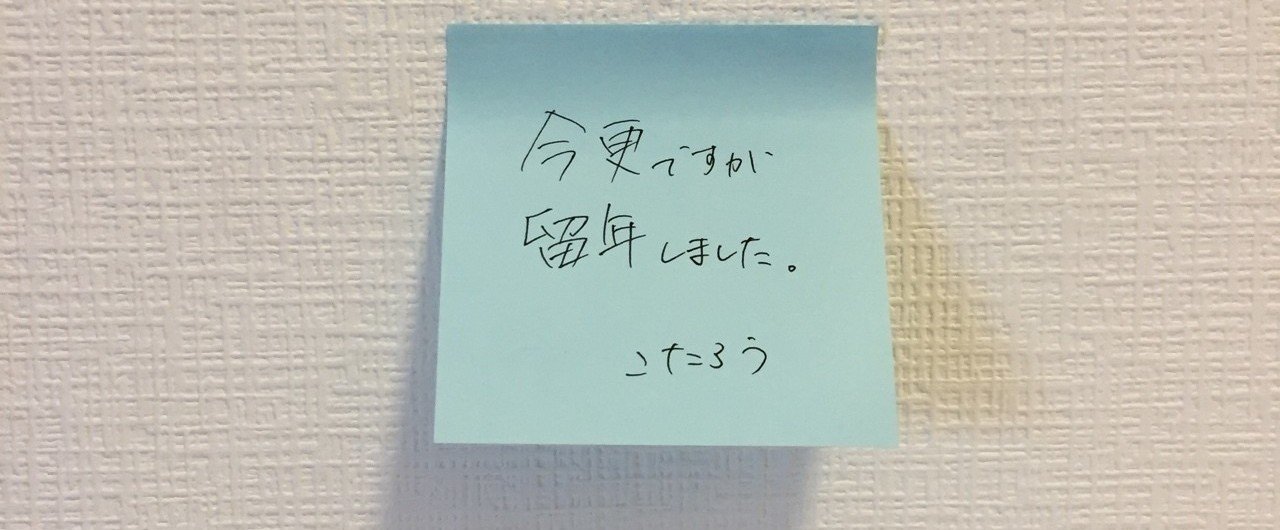 今更ですが
留年しました。
こたろう